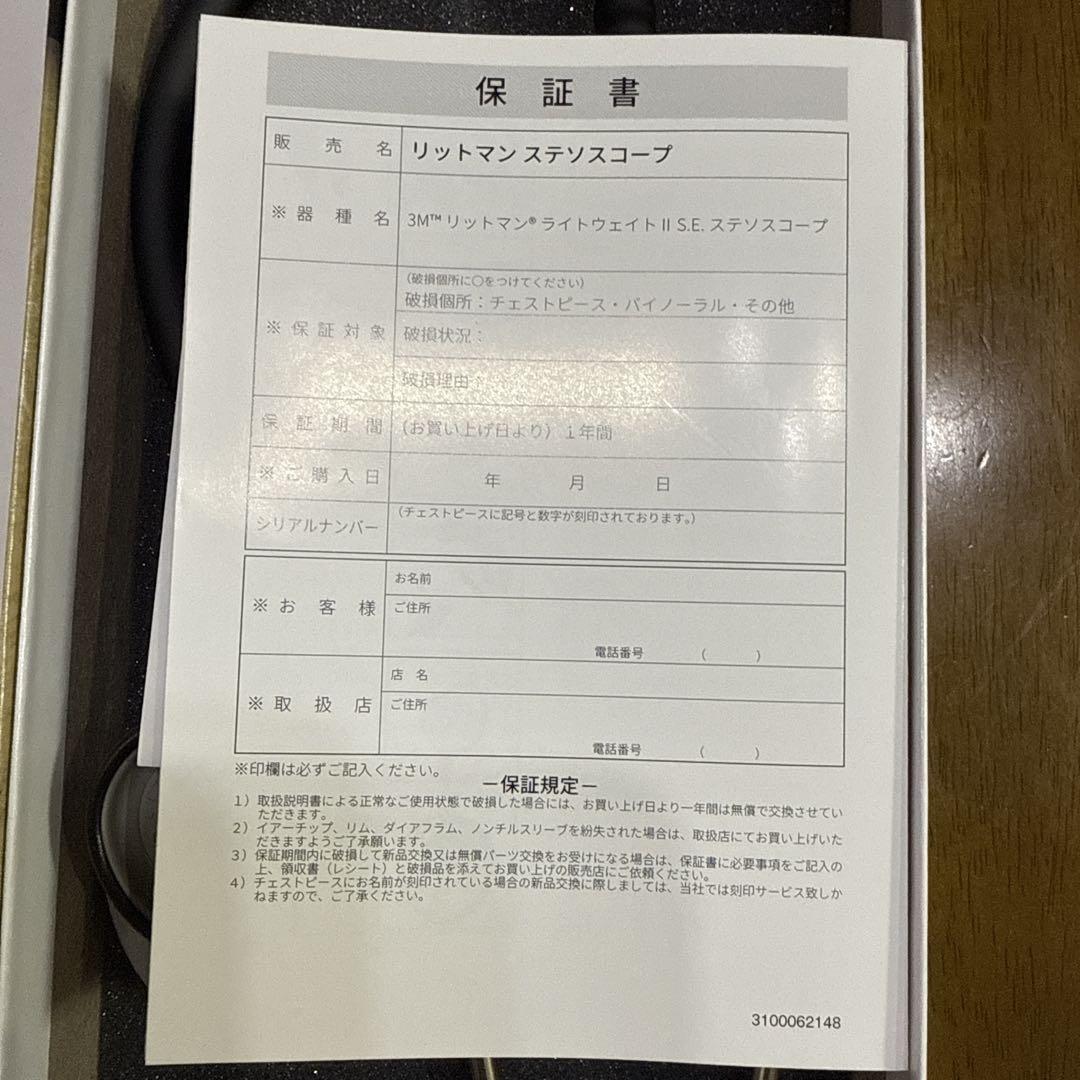 保証書
販売名 リットマン ステソスコープ
※器種名 3M™ リットマン® ライトウェイト II S.E. ステソスコープ
※保証対象 (破損個所に○をつけてください)
破損個所：チェストピース・バイノーラル・その他
破損状況：
破損理由：
保証期間 (お買い上げ日より) 1年間
※ご購入日 年 月 日
シリアルナンバー (チェストピースに記号と数字が刻印されております。)
※お客様 お名前
ご住所
電話番号 ( )
※取扱店 店名
ご住所
電話番号 ( )
※印欄は必ずご記入ください。
－保証規定－
1）取扱説明書による正常なご使用状態で破損した場合には、お買い上げ日より一年間は無償で交換させてい
ただきます。
2）イアーチップ、リム、ダイアフラム、ノンチルスリーブを紛失された場合は、取扱店にてお買い上げいた
だきますようご了承願います。
3）保証期間内に破損して新品交換又は無償パーツ交換をお受けになる場合は、保証書に必要事項をご記入の
上、領収書（レシート）と破損品を添えてお買い上げの販売店にご依頼ください。
4）チェストピースにお名前が刻印されている場合の新品交換に際しましては、当社では刻印サービス致しか
ねますので、ご了承ください。
3100062148